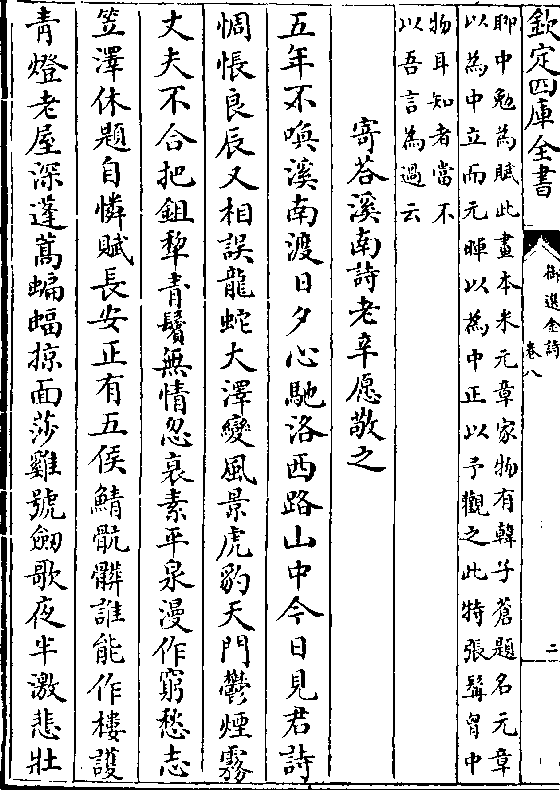 欽定四庫全書
御選金詩
卷八
二
聊中勉為賦此畫本米元章家物有韓子蒼題名元章
以為中立而元暉以為中正以予觀之此特張髯胷中
物耳知者當不
以吾言為過云
寄答溪南詩老辛愿敬之
五年不喚溪南渡日夕心馳洛西路山中今日見君詩
惆悵良辰又相誤龍蛇大澤變風景虎豹天門鬱煙霧
丈夫不合把鉏犂青鬢無情忍裹素平泉漫作窮愁志
笠澤休題自憐賦長安正有五侯鯖骯髒誰能作樓護
青燈老屋深蓬蒿蝙蝠掠面莎雞號劒歌夜半激悲壯